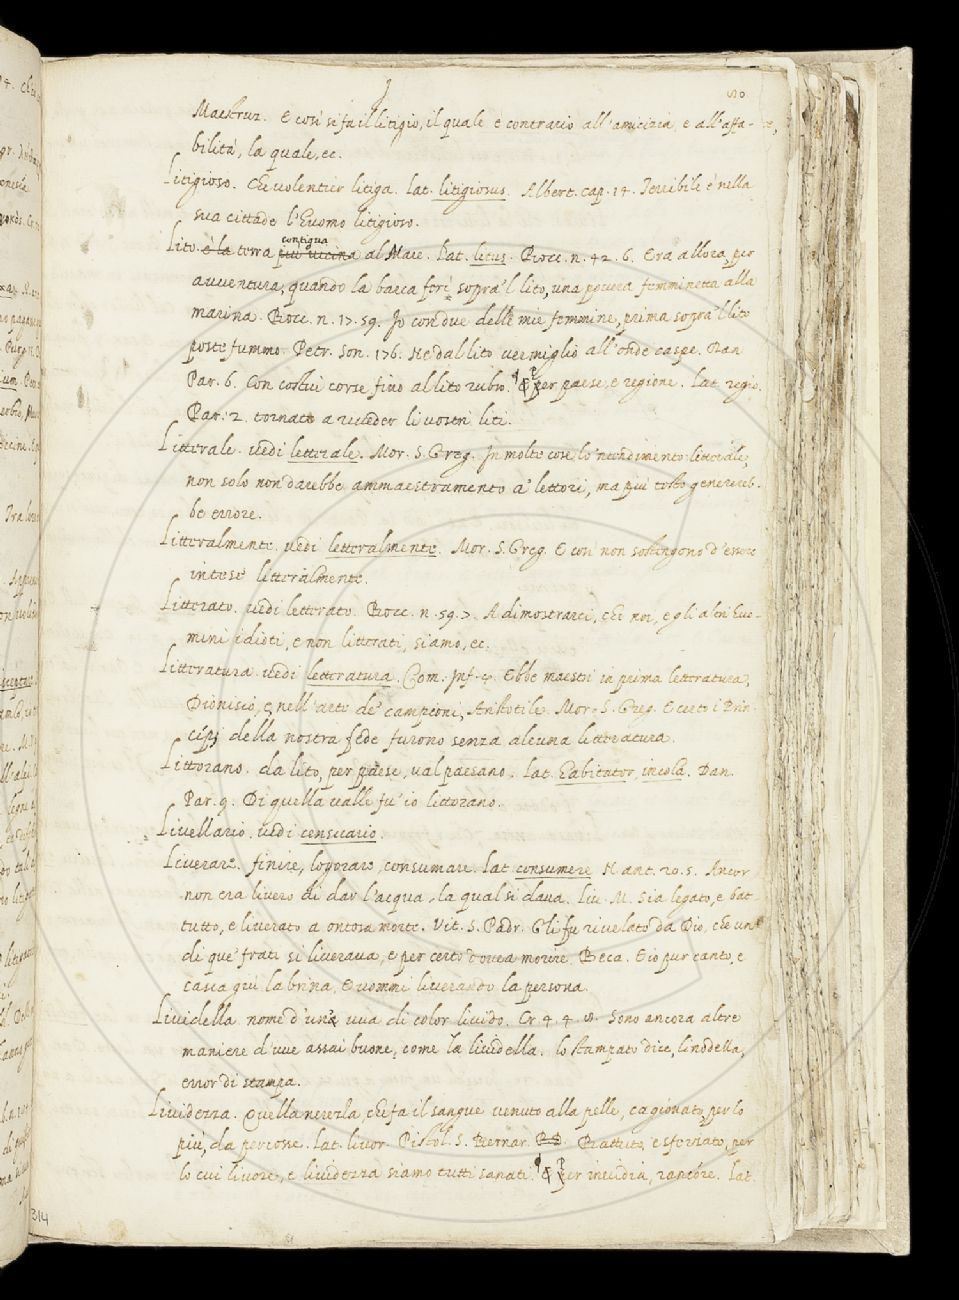 Maestruz. E così si fa il litigio, il quale è contrario all'amicizia, e all'affa-
bilità, la quale, ec.
Litigioso. Che volentier litiga. Lat. litigiosus. Albert. cap. 14. Terribile è nella
sua cittade l'Euomo litigioso.
Lito. è la terra più vicina contigua al Mare. Lat. litus. Bocc. n. 42. 6. Era allora, per
avventura, quando la barca ferì sopra'l lito, una povera femminetta alla
marina. Bocc. n. 17. 59. Io con due delle mie femmine, prima sopra'l lito
poste fummo. Petr. Son. 176. Nè dal lito vermiglio all'onde caspe. Dan.
Par. 6. Con costui corse fino al lito rubro. ¶ Per paese, e regione. Lat. regio.
Par. 2. tornate a riveder li vostri liti.
Litterale. vedi letterale. Mor. S. Greg. In molte cose lo'ntendimento litterale,
non solo non darebbe ammaestramento a' lettori, ma più tosto generereb-
be errore.
Litteralmente. vedi letteralmente. Mor. S. Greg. E così non sostengono d'essere
intese litteralmente.
Litterato. vedi letterato. Bocc. n. 59. 7. A dimostrarci, che noi, e gli altri Euo-
mini idioti, e non litterati, siamo, ec.
Litteratura. vedi letteratura. Com. Inf. 4. Ebbe maestri in prima letteratura,
Dionisio, e, nell'arte de' campioni, Aristotile. Mor. S. Greg. E certo i Prin-
cipj della nostra fede furono senza alcuna litteratura.
Littorano. da lito, per paese, val paesano. Lat. habitator, incola. Dan.
Par. 9. Di quella valle fu' io littorano.
Livellario. vedi censuario.
Liverare. finire, logorare, consumare. Lat. consumere N. ant. 20. 5. Ancor
non era livero di dar l'acqua, la qual si dava. Liv. M. Sia legato, e bat-
tuto, e liverato a ontosa morte. Vit. S. Padr. Gli fu rivelato da Dio, che uno
di que' frati si liverava, e per certo dovea morire. Beca. Eio pur canto, e
casca giù la brina, E vommi liverando la persona.
Lividella nome d'una uva di color livido. Cr. 4. 4. 8. Sono ancora altre
maniere d'uve assai buone, come la lividella. lo stampato dice, linodella,
error di stampa.
Lividezza. Quella nerezza che fa il sangue venuto alla pelle, cagionato, per lo
più, da percosse. Lat. livor. Pistol. S. Bernar. Battuto, e sfornato, per
lo cui livore, e lividezza siamo tutti sanati. ¶ Per invidia, rancore. Lat.
314